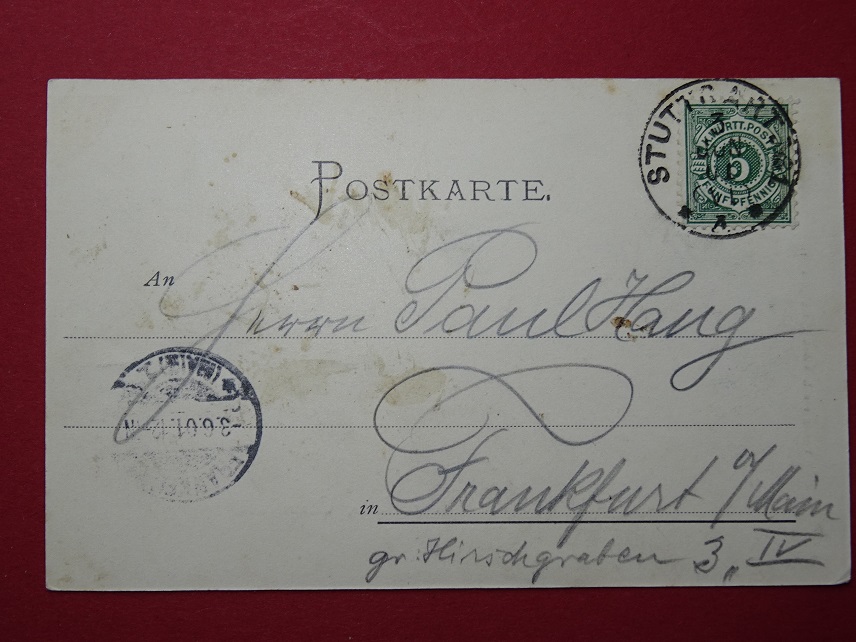 POSTKARTE.
STUTTGART
K. WÜRTT. POST
5
FÜNF PFENNIG
A
An
Herrn Paul Haug
(MAIN)
3.6.01.12-
in Frankfurt a/Main
gr. Hirschgraben 3,, IV